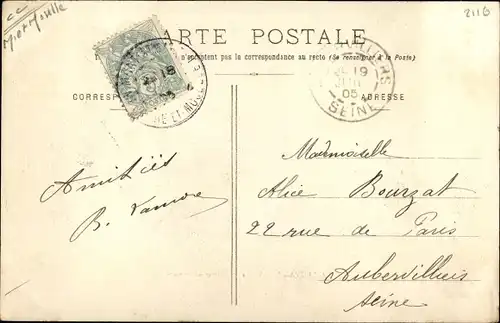 cc
Miet Moulle
2116
CARTE POSTALE
n'acceptent pas la correspondance au recto (Se renseigner à la Poste)
CORRESP
ADRESSE
19
05
SEINE
Amitiés
B.
Mademoiselle
Alice Bourzat
22 rue de Paris
Aubervilliers
Seine